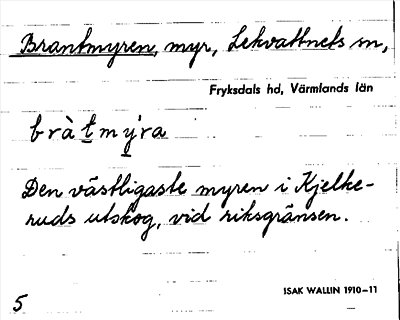 Brantmyren, myr, Lekvattnets sn,
Fryksdals hd, Värmlands län
bràt̲mý̲ra
Den västligaste myren i Kjelke-
ruds utskog, vid riksgränsen.
ISAK WALLIN 1910–11
5